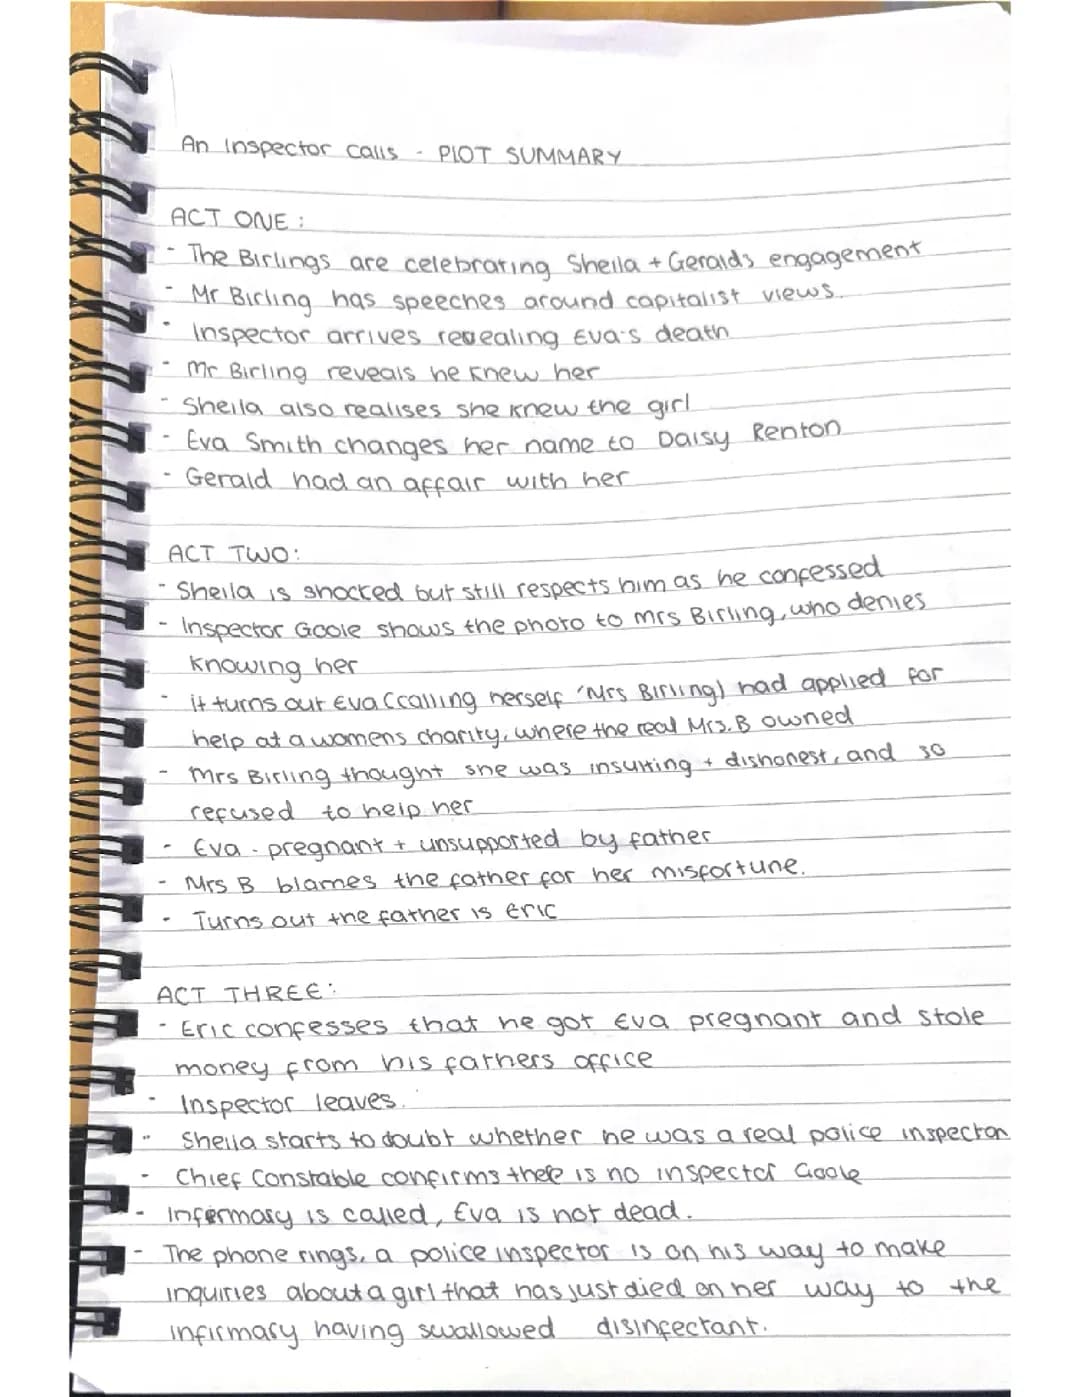 An Inspector Calls - PLOT SUMMARY
ACT ONE :
- The Birlings are celebrating Sheila + Geralds engagement
- Mr Birling has speeches around capitalist views.
- Inspector arrives revealing Eva's death
- Mr Birling reveals he knew her
- Sheila also realises she knew the girl
- Eva Smith changes her name to Daisy Renton
- Gerald had an affair with her
ACT TWO:
- Sheila is shocked but still respects him as he confessed
- Inspector Goole shows the photo to Mrs Birling, who denies
knowing her
- it turns out Eva (calling herself 'Mrs Birling) had applied for
help at a womens charity, where the real Mrs. B owned
- Mrs Birling thought she was insulting + dishonest, and so
refused to help her
- Eva - pregnant + unsupported by father
- Mrs B blames the father for her misfortune.
- Turns out the father is Eric
ACT THREE:
- Eric confesses that he got Eva pregnant and stole
money from his fathers office
- Inspector leaves.
- Sheila starts to doubt whether he was a real police inspector
- Chief Constable confirms there is no inspector Goole
- Infermary is called, Eva is not dead.
- The phone rings, a police inspector is on his way to make
inquiries about a girl that has just died on her way to the
infirmary having swallowed disinfectant.